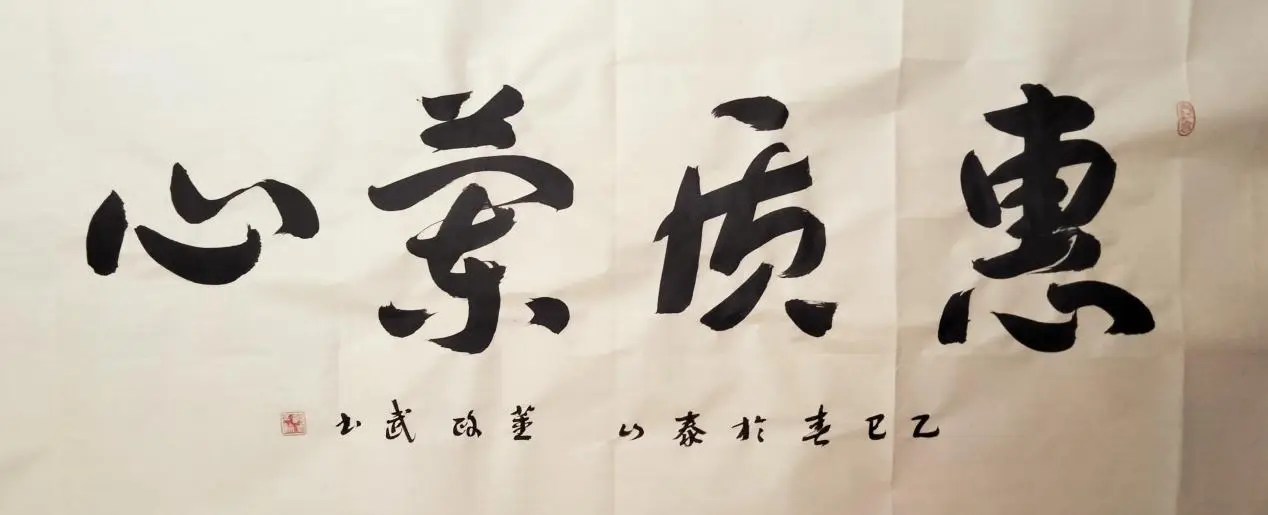 惠质兰心
乙巳春於泰山 董政武书